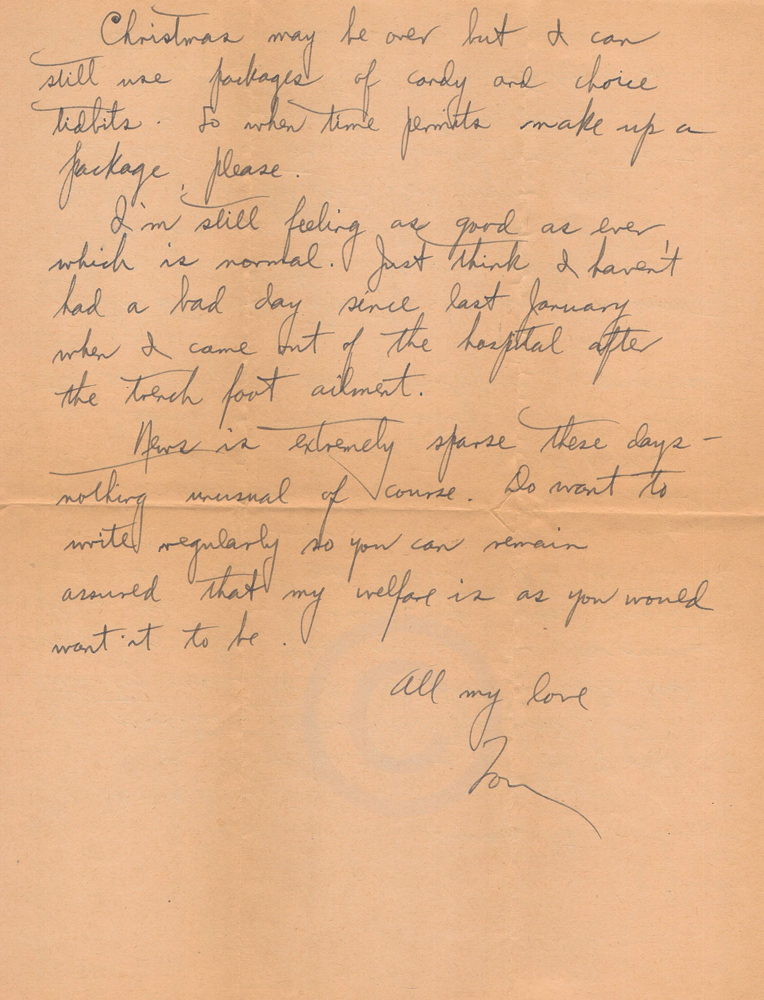 Christmas may be over but I can
still use packages of candy and choice
tidbits. So when time permits make up a
package, please.
I'm still feeling as good as ever
which is normal. Just think I haven't
had a bad day since last January
when I came out of the hospital after
the trench foot ailment.
News is extremely sparse these days -
nothing unusual of course. Do want to
write regularly so you can remain
assured that my welfare is as you would
want it to be.
All my love
Tom